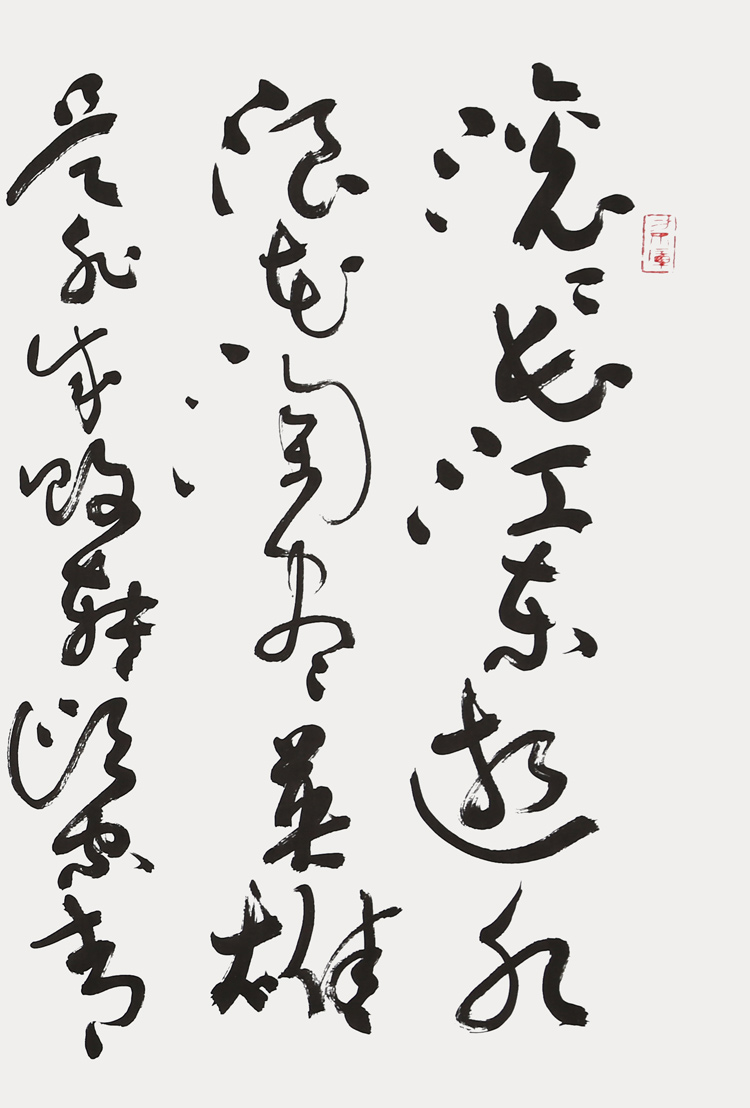 滚滚长江东逝水
浪花淘尽英雄
是非成败转头空青